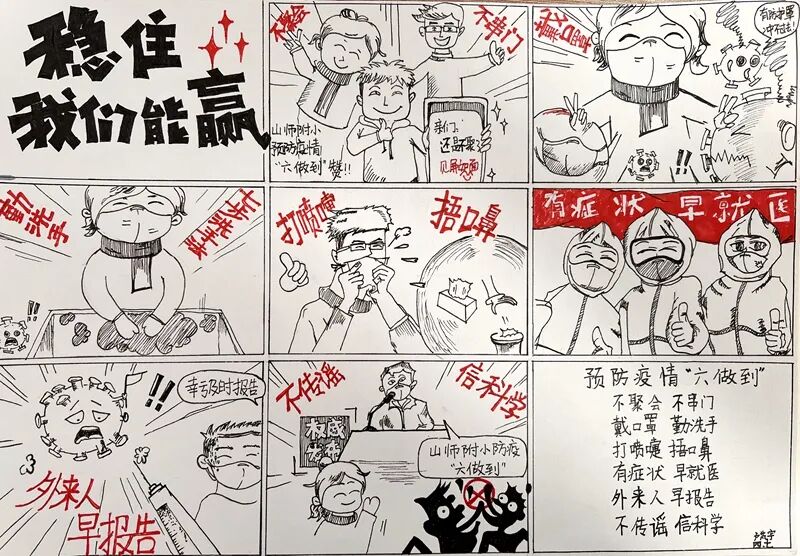 稳住
我们能赢
不聚会
不串门
山师附小
预防疫情
"六做到"赞!!
亲们,
还是聚
戴口罩
有防护罩
冲不过去!
!!
勤洗手
七步洗手法
!!
打喷嚏
捂口鼻
有症状 早就医
幸亏及时报告
!!
外来人
早报告
不传谣
信科学
权威
山师附小防疫
"六做到"
预防疫情"六做到"
不聚会 不串门
戴口罩 勤洗手
打喷嚏 捂口鼻
有症状 早就医
外来人 早报告
不传谣 信科学